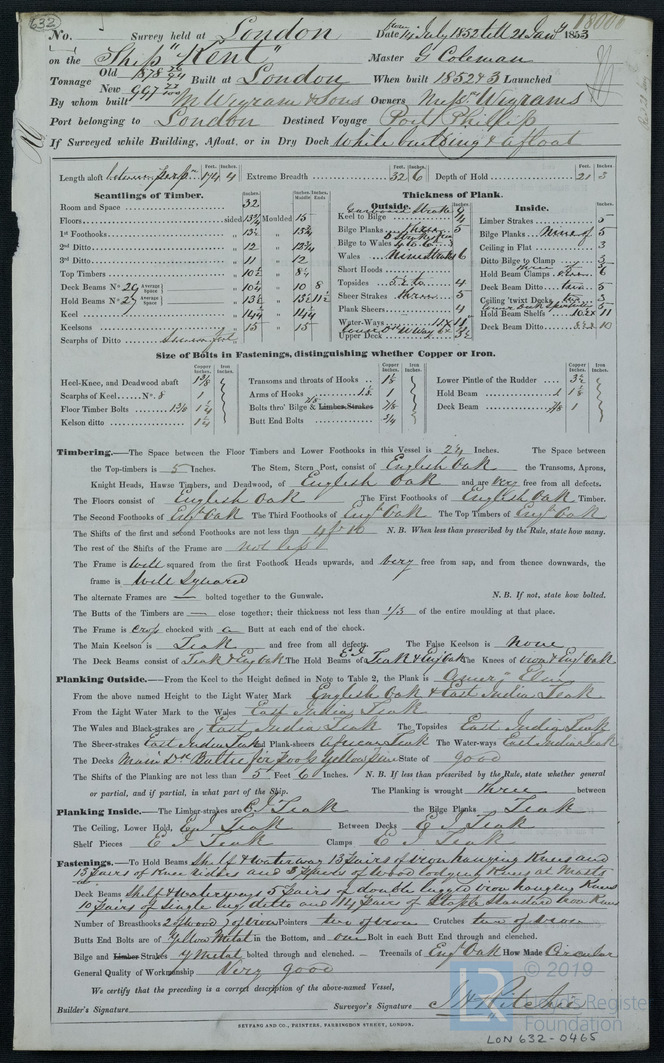 632
18000
No. Survey held at London Date from 14 July 1852 till 21 Jany 1853
on the Ship "Kent" Master G Coleman
Tonnage Old 1878 Built at London When built 1852 & 3 Launched
New 997
By whom built M Wigram & Sons Owners Messrs Wigrams
Port belonging to London Destined Voyage Port Phillip
If Surveyed while Building, Afloat, or in Dry Dock While building & afloat
Length aloft between perps 174 4 Extreme Breadth 32 6 Depth of Hold 21 3
Scantlings of Timber.
Room and Space 32
Floors sided 13¾ Moulded 15
1st Foothooks
2nd Ditto 12
3rd Ditto 11 12
Top Timbers
Deck Beams No 29 Average Space 10 8
Hold Beams No 27 Average Space
Keel
Keelsons 15 15
Scarphs of Ditto Seven feet
Thickness of Plank.
Outside.
Keel to Bilge Garboard Strake
Bilge Planks three 5
Bilge to Wales
Wales Nine Strakes 6
Short Hoods
Topsides 4
Sheer Strakes three 5
Plank Sheers 4
Water-Ways
Upper Deck
Inside.
Limber Strakes 5
Bilge Planks Nine of 5
Ceiling in Flat 3
Ditto Bilge to Clamp
Hold Beam Clamps 6
Deck Beam Ditto two 5
Ceiling 'twixt Decks
Hold Beam Shelfs 11
Deck Beam Ditto 10
Size of Bolts in Fastenings, distinguishing whether Copper or Iron.
Heel-Knee, and Deadwood abaft
Scarphs of Keel No. 8 1
Floor Timber Bolts
Kelson ditto 1¼
Transoms and throats of Hooks
Arms of Hooks
Bolts thro' Bilge & Limber Strakes 7/8
Butt End Bolts 3/4
Lower Pintle of the Rudder 3½
Hold Beam
Deck Beam 7/8 1
Timbering.—The Space between the Floor Timbers and Lower Foothooks in this Vessel is 2¼ Inches. The Space between
the Top-timbers is 5 Inches. The Stem, Stern Post, consist of English Oak the Transoms, Aprons,
Knight Heads, Hawse Timbers, and Deadwood, of English Oak and are very free from all defects.
The Floors consist of English Oak The First Foothooks of English Oak Timber.
The Second Foothooks of Engh Oak The Third Foothooks of Engh Oak The Top Timbers of Engh Oak
The Shifts of the first and second Foothooks are not less than N. B. When less than prescribed by the Rule, state how many.
The rest of the Shifts of the Frame are not less
The Frame is Well squared from the first Foothook Heads upwards, and very free from sap, and from thence downwards, the
frame is Well Squared
The alternate Frames are — bolted together to the Gunwale. N. B. If not, state how bolted.
The Butts of the Timbers are — close together; their thickness not less than 1/3 of the entire moulding at that place.
The Frame is cross chocked with a Butt at each end of the chock.
The Main Keelson is Teak and free from all defects. The False Keelson is None
The Deck Beams consist of Teak & Eng Oak The Hold Beams of E.I. Teak & Eng Oak The Knees of iron & Engh Oak
Planking Outside.—From the Keel to the Height defined in Note to Table 2, the Plank is Amern Elm
From the above named Height to the Light Water Mark English Oak & East India Teak
From the Light Water Mark to the Wales East India Teak
The Wales and Black-strakes are East India Teak The Topsides East India Teak
The Sheer-strakes East India Teak and Plank-sheers African Teak The Water-ways East India Teak
The Decks Main Dk Baltic fir Yellow pine State of good
The Shifts of the Planking are not less than 5 Feet 6 Inches. N. B. If less than prescribed by the Rule, state whether general
or partial, and if partial, in what part of the Ship. The Planking is wrought three between
Planking Inside.—The Limber-strakes are E I Teak the Bilge Planks Teak
The Ceiling, Lower Hold, E I Teak Between Decks E I Teak
Shelf Pieces E I Teak Clamps E I Teak
Fastenings.—To Hold Beams Shelf & Waterway 13 pairs of iron hanging Knees and
13 pairs of Knee riders and 3 pairs of Wood lodging Knees at Masts
Deck Beams Shelf & Waterways 5 pairs of double lugged iron hanging Knees
10 pairs of Single lug ditto and 14 pairs of Staple Standard iron Knees
Number of Breasthooks 2 of wood 3 of iron Pointers two of iron Crutches two of iron
Butts End Bolts are of Yellow Metal in the Bottom, and one Bolt in each Butt End through and clenched.
Bilge and Limber Strakes Y Metal bolted through and clenched. — Treenails of Engh Oak How Made Circular
General Quality of Workmanship Very good
We certify that the preceding is a correct description of the above-named Vessel,
Builder's Signature Surveyor's Signature J H Ritchie
SEYFANG AND CO., PRINTERS, FARRINGDON STREET, LONDON.
© 2019
Lloyd's Register
Foundation
LON 632-0465